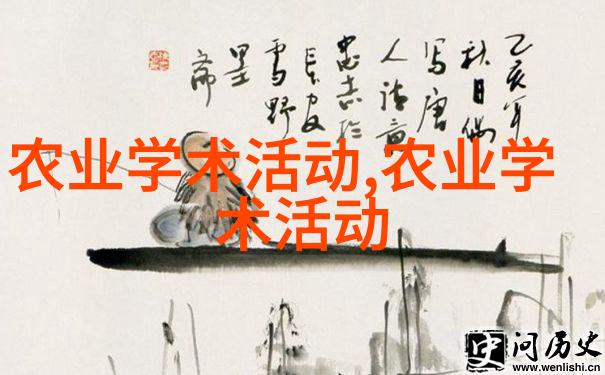 乙亥年
秋日偶
写唐
人诗意
忠志於
长安
雪野
墨
斋
农业学术活动,农业学
术活动
史问历史
www.wenlishi.cn